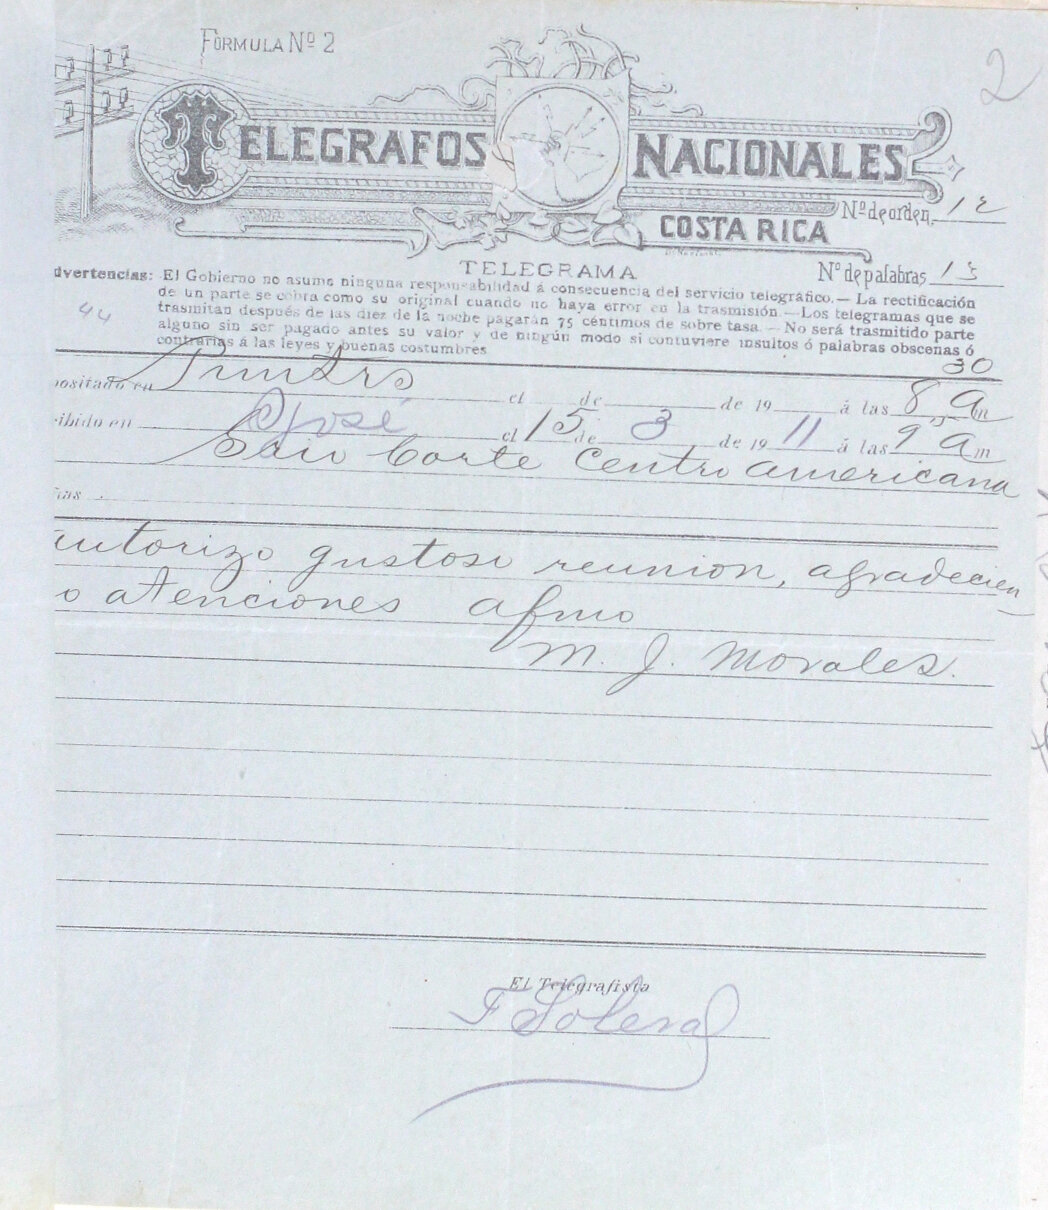 FÓRMULA Nº 2
2
TELEGRAFOS NACIONALES
Nº de orden 12
COSTA RICA
TELEGRAMA
Nº de palabras 13
dvertencias: El Gobierno no asume ninguna responsabilidad á consecuencia del servicio telegráfico.— La rectificación
de un parte se cobra como su original cuando no haya error en la trasmisión.—Los telegramas que se
44
trasmitan después de las diez de la noche pagarán 75 céntimos de sobre tasa.—No será trasmitido parte
alguno sin ser pagado antes su valor y de ningún modo si contuviere insultos ó palabras obscenas ó
contrarias á las leyes y buenas costumbres
positado en Puntas el de de 19 á las 8 30 am
ibido en S José el 15 de 3 de 19 11 á las 9 15 am
Srio Corte Centro americana
ñas
autorizo gustoso reunion, agradecien
o atenciones afmo
M. J. Morales.
El Telegrafista
F Solera